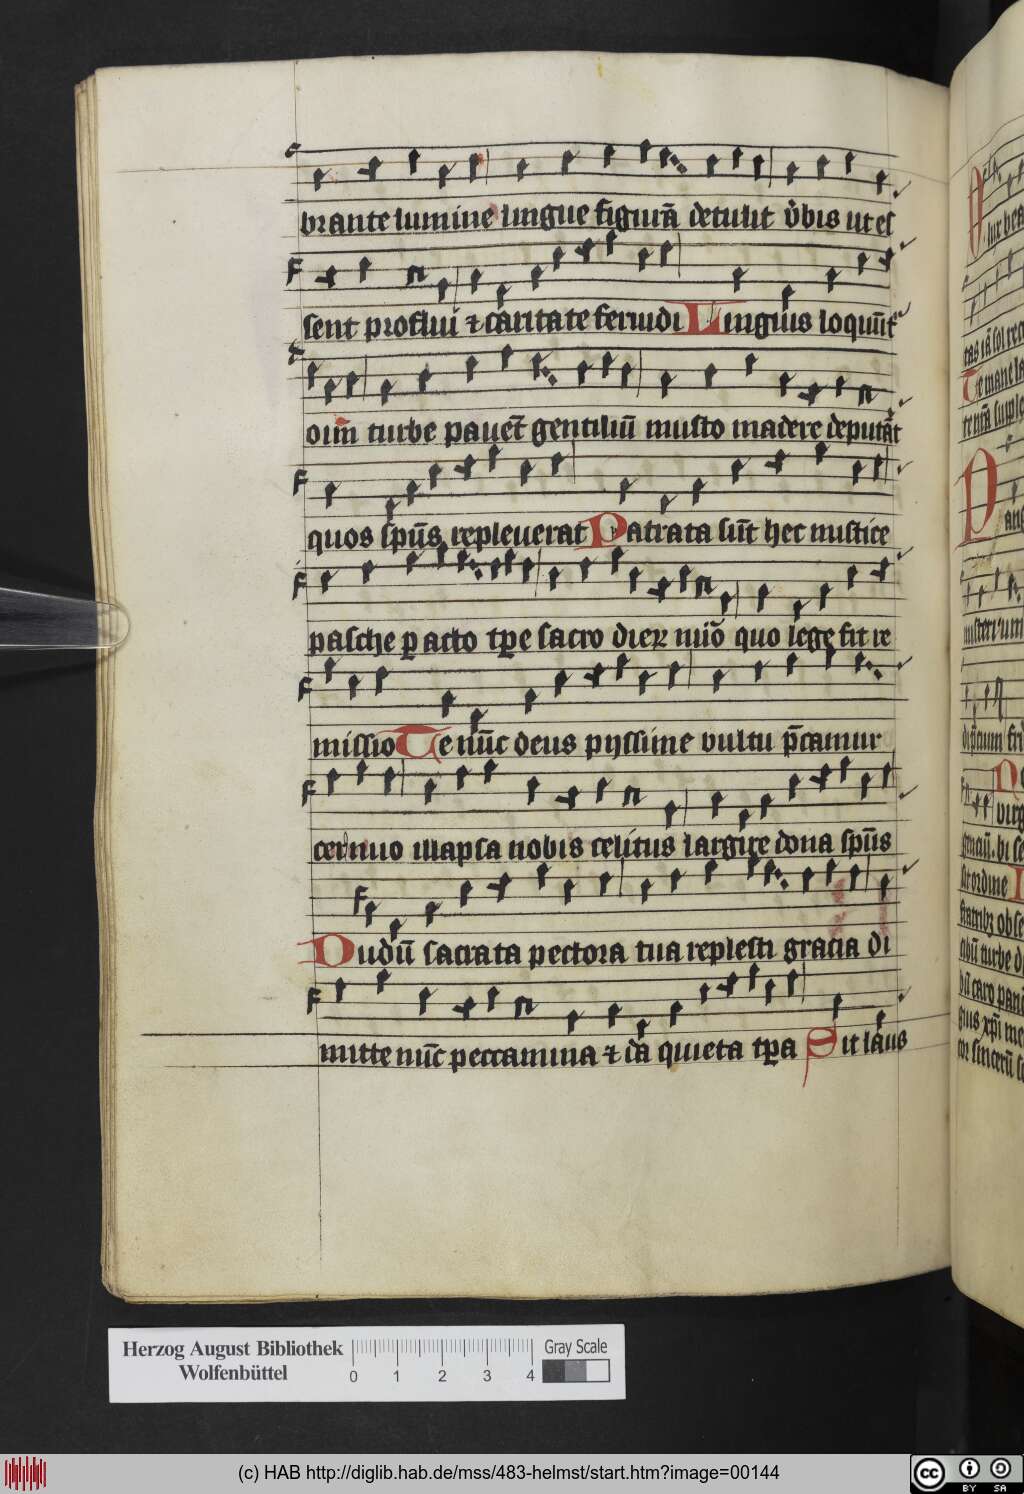 brante lumine lingue figurā detulit v̓bis ut eſ
ſent proflui ⁊ caritate feruidi Linguis loquūt᷑
oīm turbe pauēt gentiliū muſto madere deputāt
quos ſpūs repleuerat Patrata ſūt hec miſtice
paſche ꝑacto tꝑe ſacro dieꝝ nūō quo lege fit re
miſſio Te nūc deus pijſſime vultu p̄camur
cernuo illapſa nobis celitus largire dona ſpūs
Dudū ſacrata pectora tua repleſti gracia di
mitte nūc peccamina ⁊ da quieta tꝑa Sit laus
Herzog August Bibliothek
Wolfenbüttel
0 1 2 3 4
Gray Scale
(c) HAB http://diglib.hab.de/mss/483-helmst/start.htm?image=00144
cc BY SA